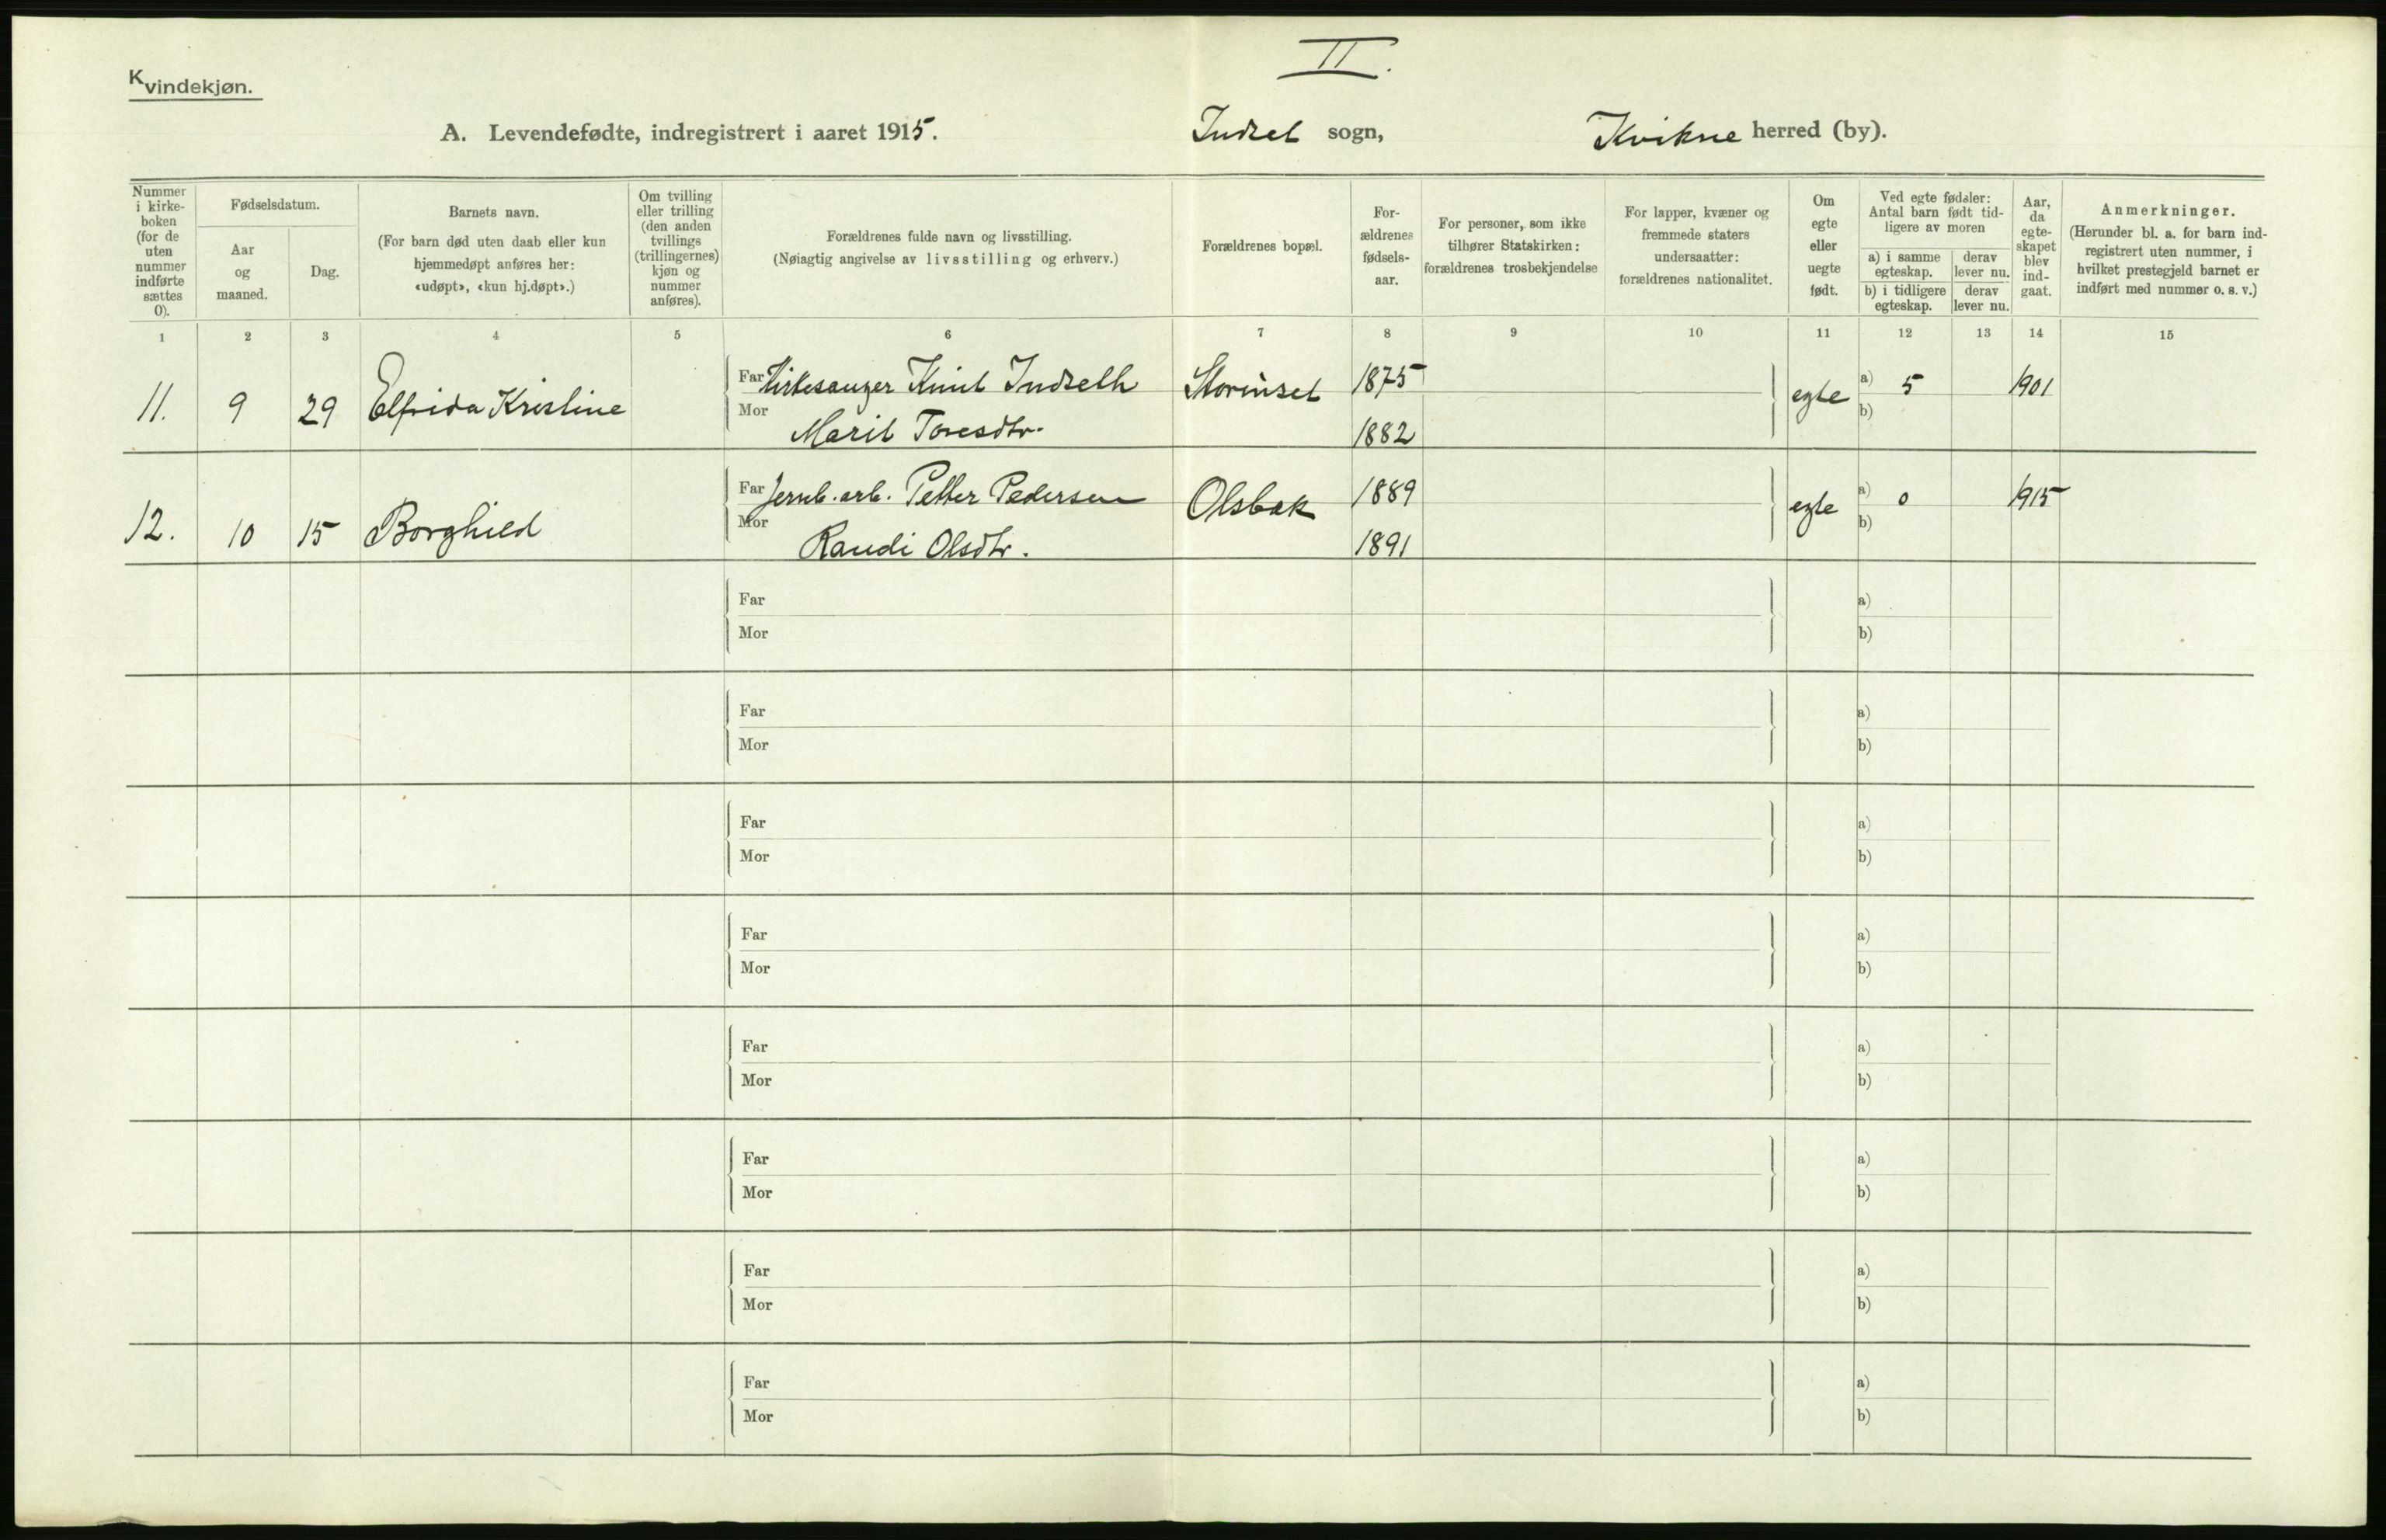 II.
Kvindekjøn.
A. Levendefødte, indregistrert i aaret 1915. Indset sogn, Kvikne herred (by).
Nummer i kirkeboken (for de uten nummer indførte sættes 0).
Fødselsdatum.
Aar og maaned.
Dag.
Barnets navn.
(For barn død uten daab eller kun hjemmedøpt anføres her: «udøpt», «kun hj.døpt».)
Om tvilling eller trilling (den anden tvillings (trillingernes) kjøn og nummer anføres).
Forældrenes fulde navn og livsstilling.
(Nøiagtig angivelse av livsstilling og erhverv.)
Forældrenes bopæl.
For-ældrenes fødsels-aar.
For personer, som ikke tilhører Statskirken: forældrenes trosbekjendelse
For lapper, kvæner og fremmede staters undersaatter: forældrenes nationalitet.
Om egte eller uegte født.
Ved egte fødsler: Antal barn født tid-ligere av moren
a) i samme egteskap.
derav lever nu.
b) i tidligere egteskap.
derav lever nu.
Aar, da egte-skapet blev ind-gaat.
Anmerkninger.
(Herunder bl. a. for barn ind-registrert uten nummer, i hvilket prestegjeld barnet er indført med nummer o. s. v.)
1 2 3 4 5 6 7 8 9 10 11 12 13 14 15
11. 9 29 Elfrida Kristine Far Kirkesanger Knut Indseth Storinset 1875 egte a) 5 1901
Mor Marit Toresdtr. 1882 b)
12. 10 15 Borghild Far Jernb. arb. Petter Pedersen Olsbak 1889 egte a) 0 1915
Mor Randi Olsdtr. 1891 b)
Far a)
Mor b)
Far a)
Mor b)
Far a)
Mor b)
Far a)
Mor b)
Far a)
Mor b)
Far a)
Mor b)
Far a)
Mor b)
Far a)
Mor b)